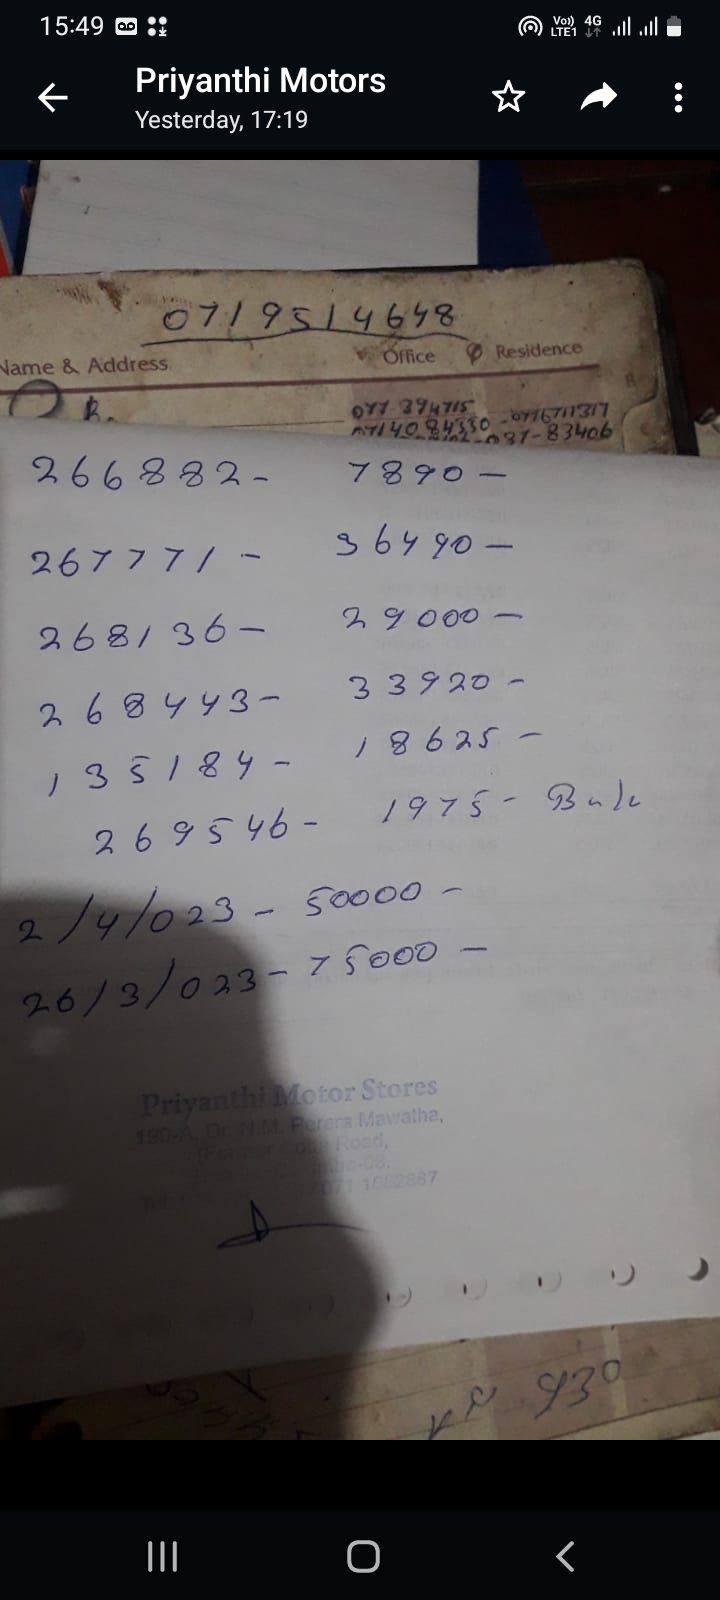 15:49
Vo)) 4G
LTE1
Priyanthi Motors
Yesterday, 17:19
0719514648
Name & Address Office Residence
R.
077 394715
0714084330 - 0776711317
031-83406
266882- 7890-
267771- 36490-
268136- 29000-
268443- 33920-
135184- 18625-
269546- 1975-
2/4/023- 50000-
26/3/023- 75000-
Priyanthi Motor Stores
190-A, Dr. N.M. Perera Mawatha,
Road,
930